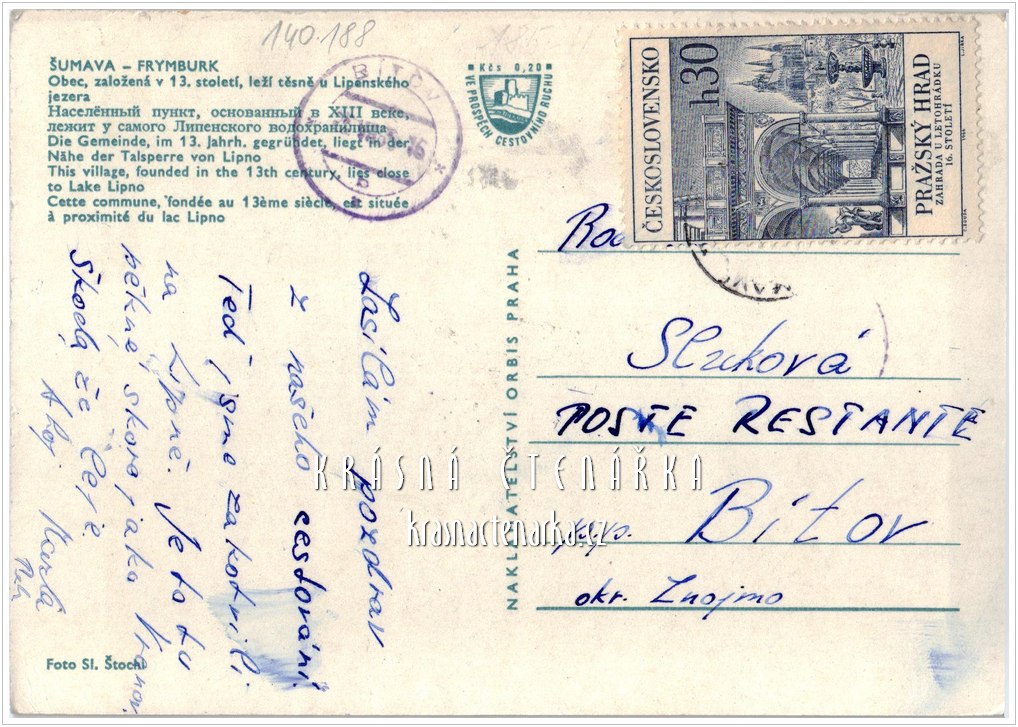 140.188
ŠUMAVA – FRYMBURK
Obec, založená v 13. století, leží těsně u Lipenského
jezera
Населённый пункт, основанный в XIII веке,
лежит у самого Липенского водохранилища
Die Gemeinde, im 13. Jahrh. gegründet, liegt in der
Nähe der Talsperre von Lipno
This village, founded in the 13th century, lies close
to Lake Lipno
Cette commune, fondée au 13ème siècle, est située
à proximité du lac Lipno
BÍTOV
b
Kčs 0,20
VE PROSPĚCH CESTOVNÍHO RUCHU
ČESKOSLOVENSKO
30 h
PRAŽSKÝ HRAD
ZAHRADA U LETOHRÁDKU
16. STOLETÍ
Zasílám pozdrav
z našeho cestování.
Teď jsme zakotvili
na Lipně. Je to tu
pěkné, skoro jako Vranov.
Škoda že
Ahoj
NAKLADATELSTVÍ ORBIS PRAHA
Sluková
POSTE RESTANTE
Bítov
okr. Znojmo
KRÁSNÁ ČTENÁŘKA
krasnactenarka.cz
Foto Sl. Štochl